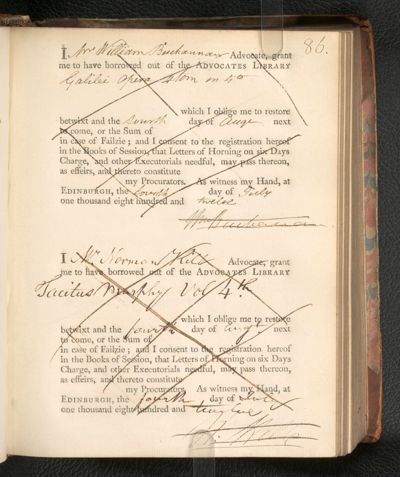 86.
I, Mr William Buchannan Advocate, grant
me to have borrowed out of the ADVOCATES LIBRARY
Galilei Opera 4 tom in 4º
which I oblige me to restore
betwixt and the fourth day of Augt next
to come, or the Sum of
in case of Failzie; and I consent to the registration hereof
in the Books of Session, that Letters of Horning on six Days
Charge, and other Executorials needful, may pass thereon,
as effeirs, and thereto constitute
my Procurators. As witness my Hand, at
EDINBURGH, the fourth day of July
one thousand eight hundred and twelve
Wm Buchanan
I, Mr Norman Hill Advocate, grant
me to have borrowed out of the ADVOCATES LIBRARY
Tacitus Murphy Vol 4th
which I oblige me to restore
betwixt and the fourth day of Augt next
to come, or the Sum of
in case of Failzie; and I consent to the registration hereof
in the Books of Session, that Letters of Horning on six Days
Charge, and other Executorials needful, may pass thereon,
as effeirs, and thereto constitute
my Procurators. As witness my Hand, at
EDINBURGH, the fourth day of July
one thousand eight hundred and twelve